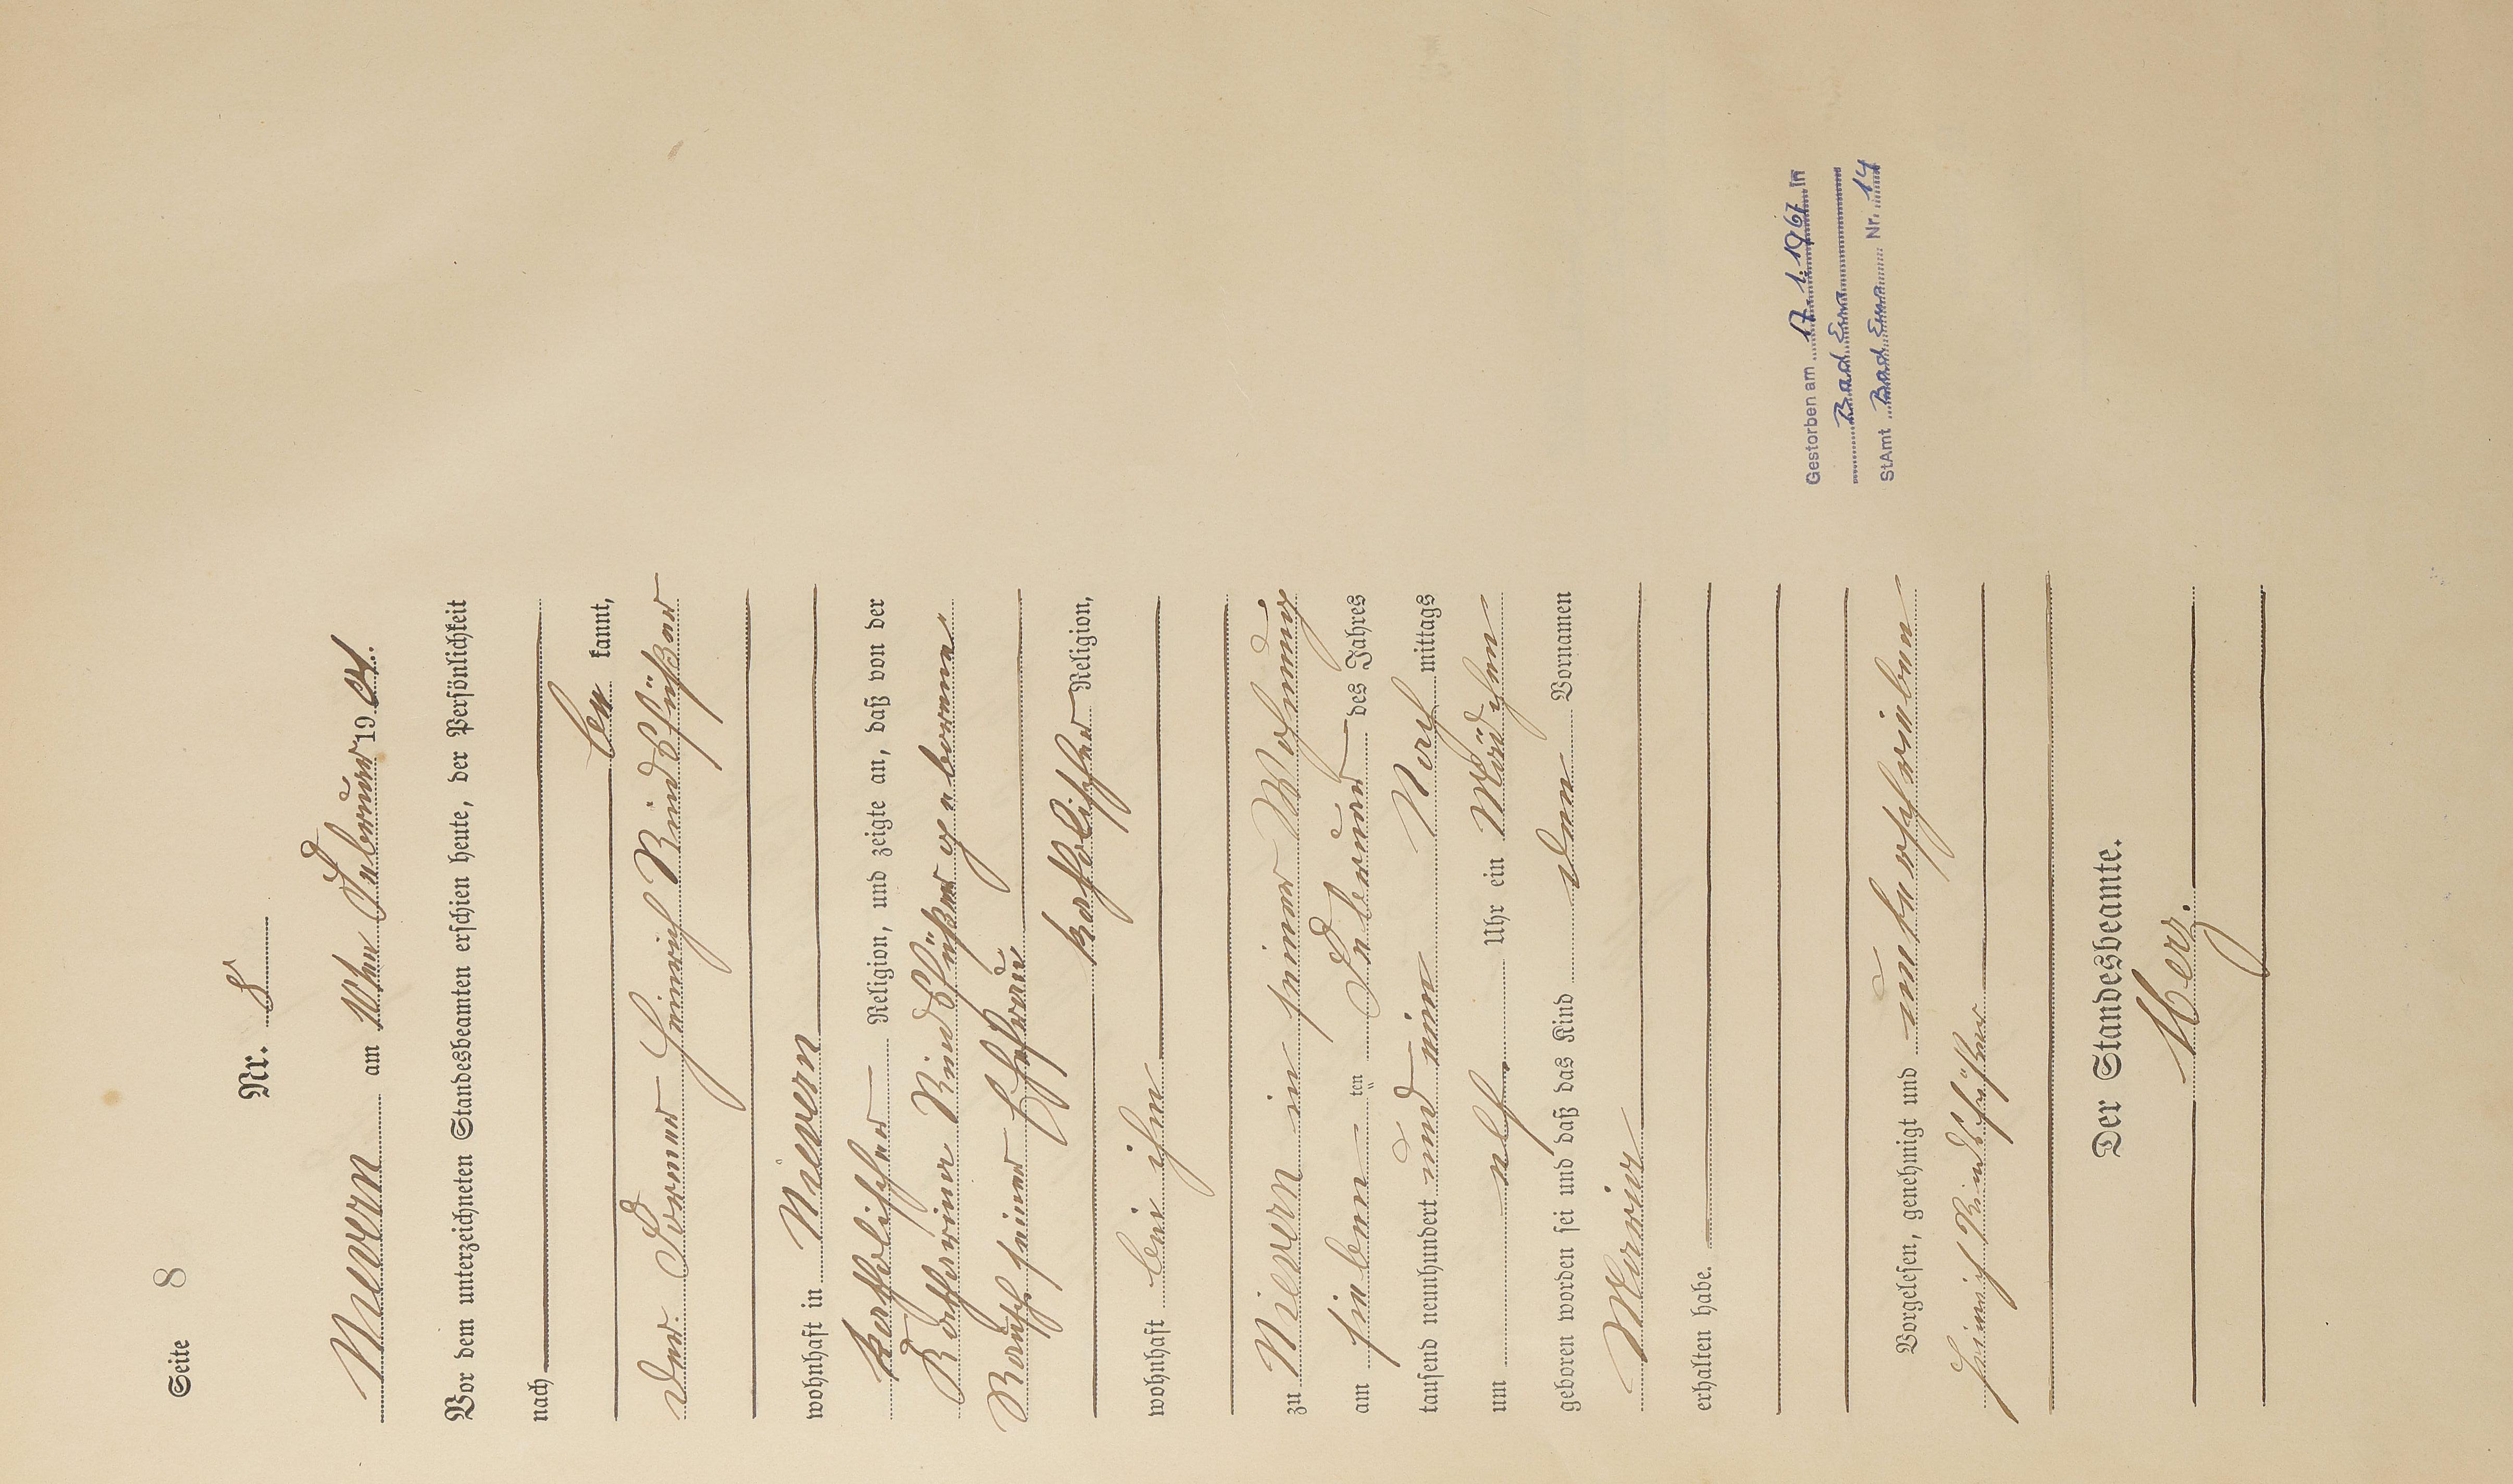 Seite 8
Nr. 8
Nievern am 10ten Februar 1904.
Vor dem unterzeichneten Standesbeamten erschien heute, der Persönlichkeit
nach
be kannt,
der Former Heinrich Rindsfüßer
wohnhaft in Nievern
katholischer Religion, und zeigte an, daß von der
Katharina Rindsfüßer geborene
seiner Ehefrau
katholischer Religion,
wohnhaft bei ihm
zu Nievern in seiner Wohnung
am sieben ten Februar des Jahres
tausend neunhundert und vier Nach mittags
um elf Uhr ein Mädchen
geboren worden sei und daß das Kind den Vornamen
Maria
erhalten habe.
Vorgelesen, genehmigt und unterschrieben
Heinrich Rindsfüßer
Der Standesbeamte.
Gestorben am 17.1.1967 in
Bad Ems
StAmt Bad Ems Nr. 14